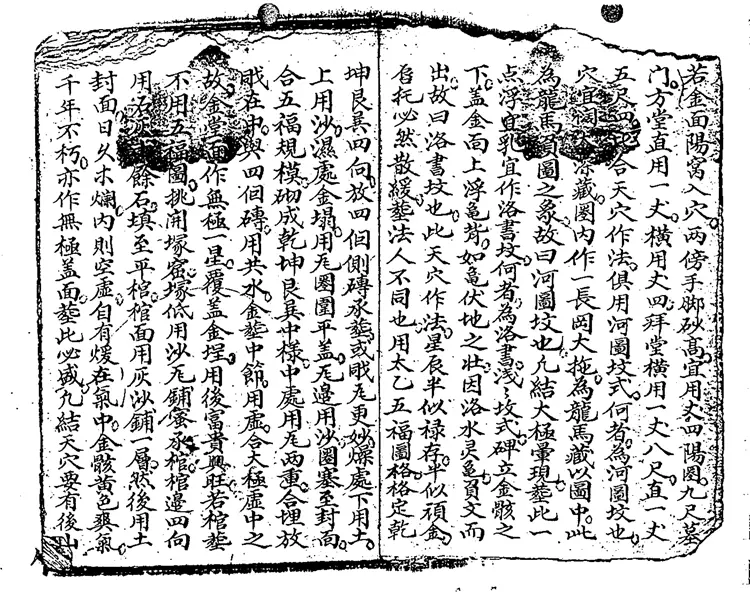 若金面陽窩入穴兩傍手脚砂髙宜用丈四陽圏九尺墓
门方堂直用一丈橫用丈四拜堂橫用一丈八尺直一丈
五尺四合天穴作法俱用河圖坟式何者為河圖坟也
穴宜深藏圏内作一長岡大拖為龍馬藏以圖中此
為龍馬負圖之象故曰河圖坟也凢結大極暈現塟此一
点浮宜乳宜作洛書坟何者為洛書淺〻坟式碑立金骸之
下盖金面上浮龟背如龟伏地之壮因洛水灵龟負文而
出故曰洛書坟也此天穴作法星辰半似禄存半似頑金
必然散緩塟法人不同也用太乙五福圖格格定乾
坤艮巽四向放四但側磚承塟或戝瓦更妙燥處下用土
上用沙濕處金塌用瓦圏圍平盖瓦邉用沙圏塞至封面
合五福規模砌成乾坤艮巽中様中處用瓦两重合埋放
戝在中與四徊磚用共水金塟中餙用虚合大極虚中之
故金堂面作無極一星覆盖金埕用後富貴興旺若棺塟
不用五福圖挑開塚窑塚低用沙瓦鋪蜜承棺棺邉四向
用石灰餘石填至平棺棺面用灰沙鋪一層然後用土
封面日久木爛内則空虚自有煖在氣中金骸黄色爽氣
千年不朽亦作無極盖面塟此必盛凢結天穴要有後山